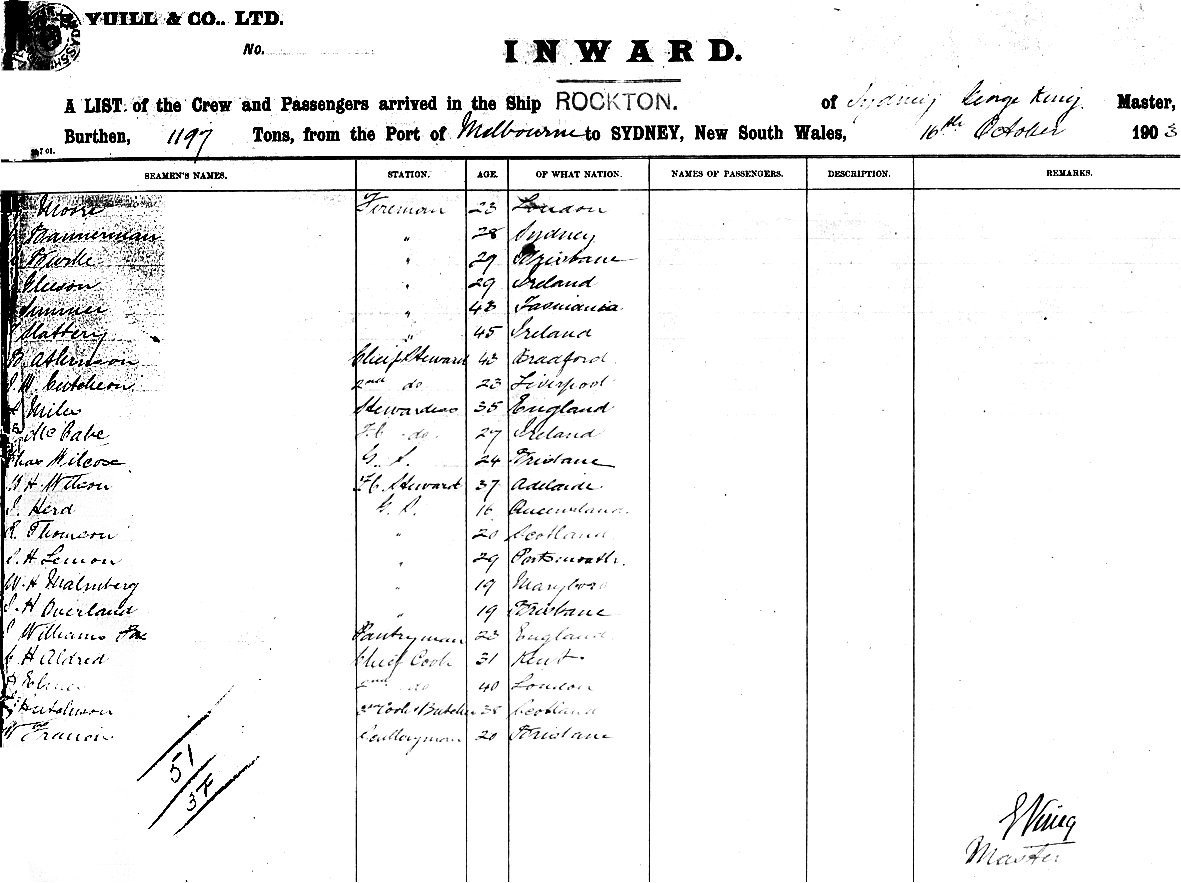 YUILL & CO., LTD.
No.
INWARD.
A LIST of the Crew and Passengers arrived in the Ship ROCKTON. of Sydney George King Master,
Burthen, 1197 Tons, from the Port of Melbourne to SYDNEY, New South Wales, 16th October 1903
SEAMEN'S NAMES. STATION. AGE. OF WHAT NATION. NAMES OF PASSENGERS. DESCRIPTION. REMARKS.
Moore Fireman 23 London
Bannerman " 28 Sydney
" 29 Brisbane
Gleeson " 29 Ireland
" 43 Tasmania
Slattery " 45 Ireland
Atkinson Chief Steward 43 Bradford
2nd do 23 Liverpool
Miles Stewardess 35 England
McCabe F.C. do. 27 Ireland
Chas Wilcox G. S. 24 Brisbane
H Wilson F.C. Steward 37 Adelaide
J. Herd G. S. 16 Queensland
R. Thomson " 20 Scotland
H Lemon " 29 Portsmouth
W. H Malmberg " 19 Maryboro
J. H Overland " 19 Brisbane
Williams Pantryman 23 England
C H Aldred Chief Cook 31 Kent
2nd do 40 London
Hutchison 3rd Cook & Butcher 38 Scotland
Sculleryman 20 Brisbane
51
37
G King
Master